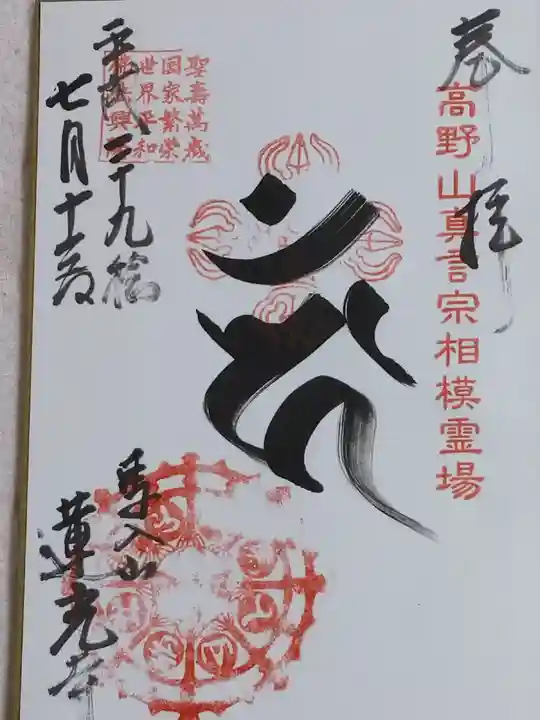 奉拝
高野山真言宗相模霊場
聖壽萬歳
国家繁栄
世界平和
平成二十九稔
七月十五日
蓮光寺